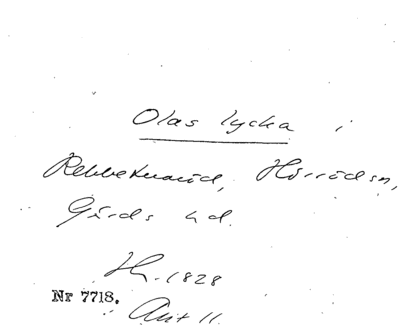 Olas lycka i
Rebbetuaröd, Hörröds sn,
Gärds hd.
Hr. 1828
Nr 7718.
Akt 11.